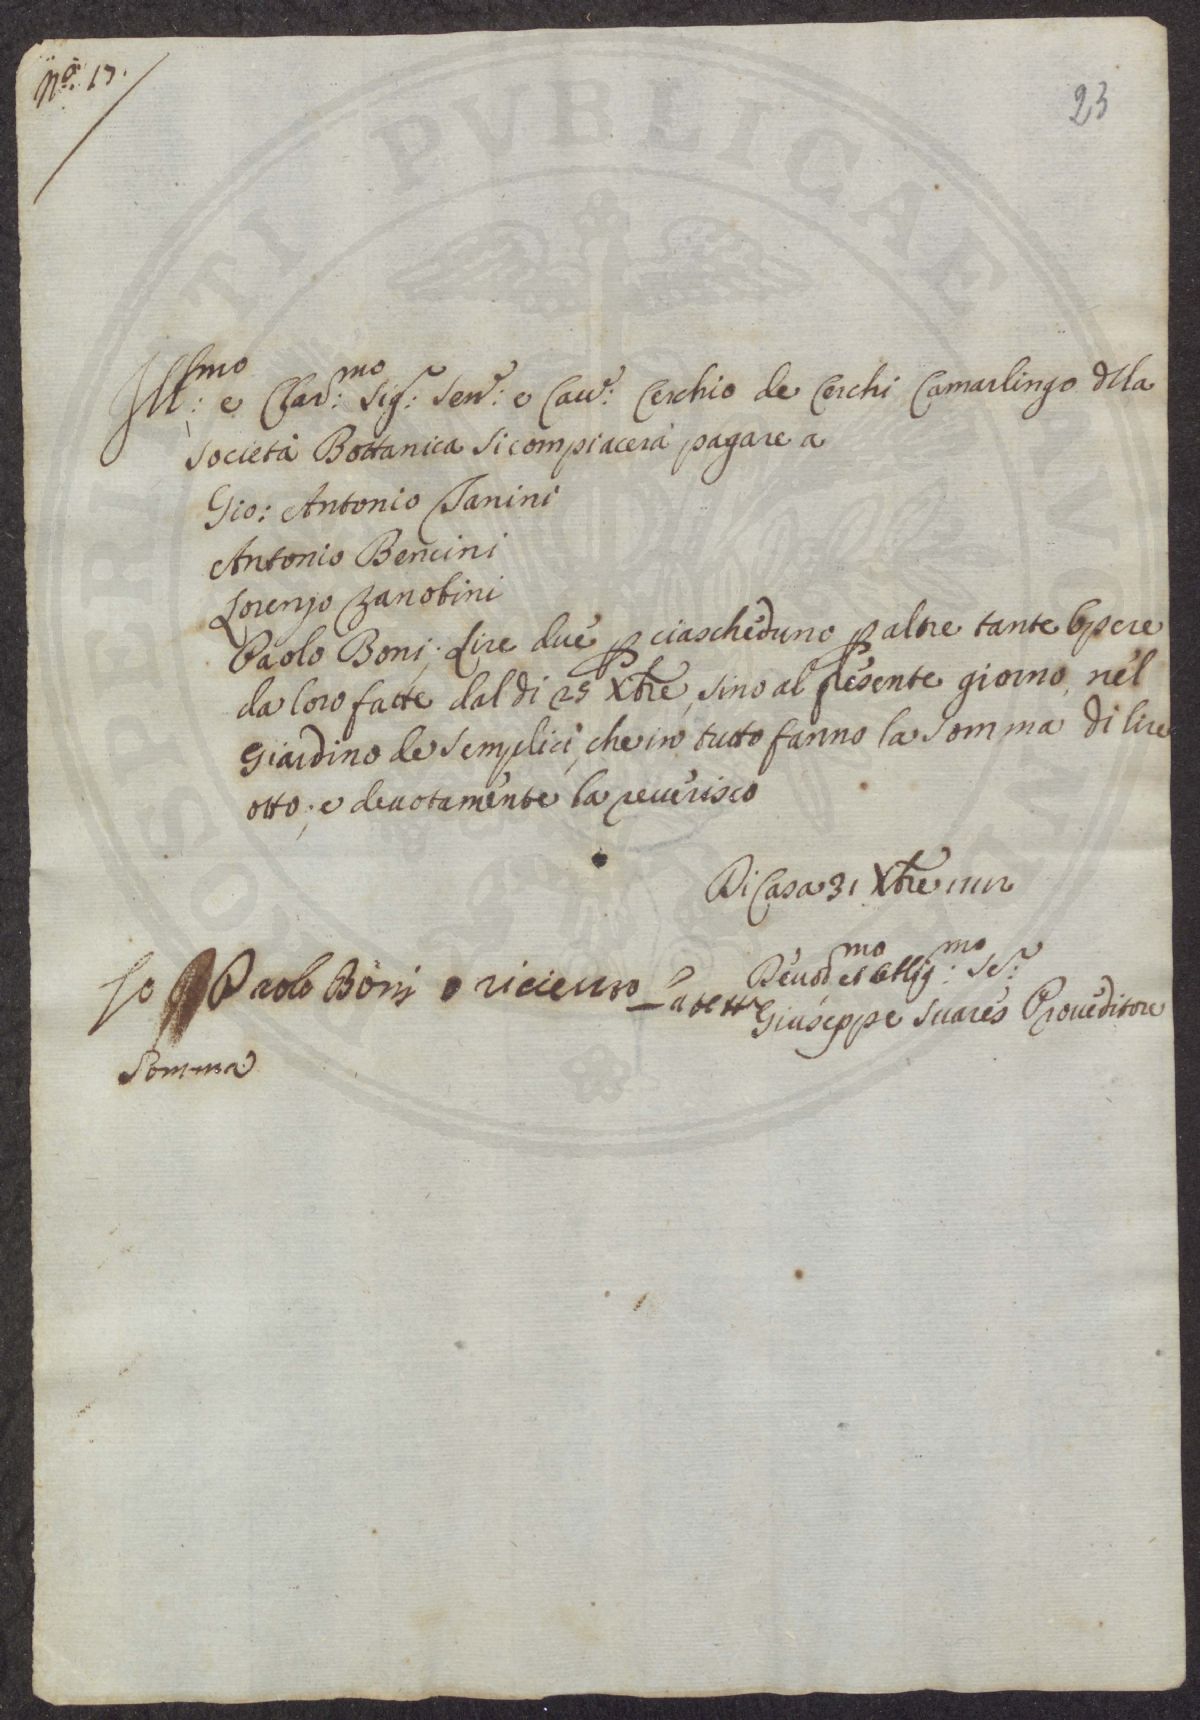 Nº: 17.
23
Ill:mo e Clar:mo Sig:r Sen:r e Cav:r Cerchio de Cerchi Camarlingo della
Società Bottanica si compiacerà pagare a
Gio: Antonio Janini
Antonio Bencini
Lorenzo Zanobini
Paolo Boni; Lire due p ciascheduno p altre tante Opere
da loro fatte dal di 25 Xbre, sino al presente giorno, nel
Giardino de Semplici, che in tutto fanno la somma di lire
otto; e devotamente la reverisco
Di Casa 31 Xbre
Devot:mo et Obblig:mo Se:r
Giuseppe Suares Proveditore
Io Paolo Boni o riceuto la detta
Somma